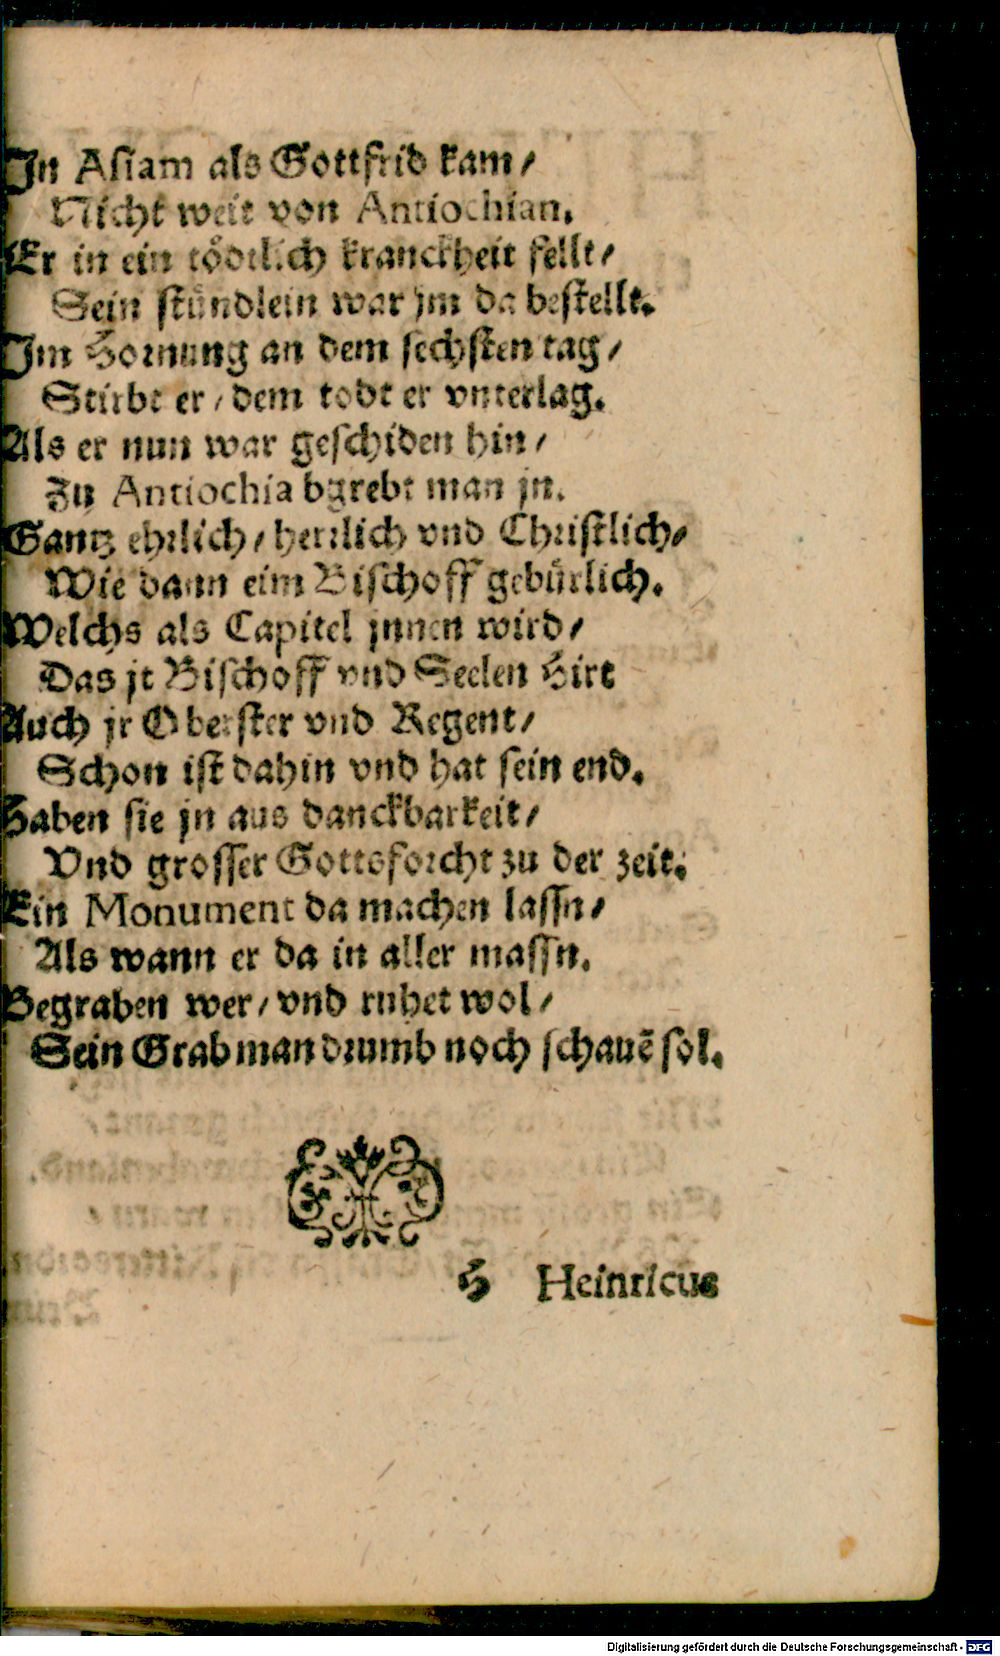 In Asiam als Gottfrid kam/
Nicht weit von Antiochian.
Er in ein tödtlich kranckheit fellt/
Sein stündlein war jm da bestellt.
Im Hornung an dem sechsten tag/
Stirbt er/ dem todt er vnterlag.
Als er nun war geschiden hin/
Zu Antiochia bgrebt man jn.
Gantz ehrlich/ herrlich vnd Christlich/
Wie dann eim Bischoff gebürlich.
Welchs als Capitel jnnen wird/
Das jr Bischoff vnd Seelen Hirt
Auch jr Oberster vnd Regent/
Schon ist dahin vnd hat sein end.
Haben sie jn aus danckbarkeit/
Vnd grosser Gottsforcht zu der zeit.
Ein Monument da machen lassn/
Als wann er da in aller massn.
Begraben wer/ vnd ruhet wol/
Sein Grab man drumb noch schauē sol.
H Heinricus
Digitalisierung gefördert durch die Deutsche Forschungsgemeinschaft - DFG